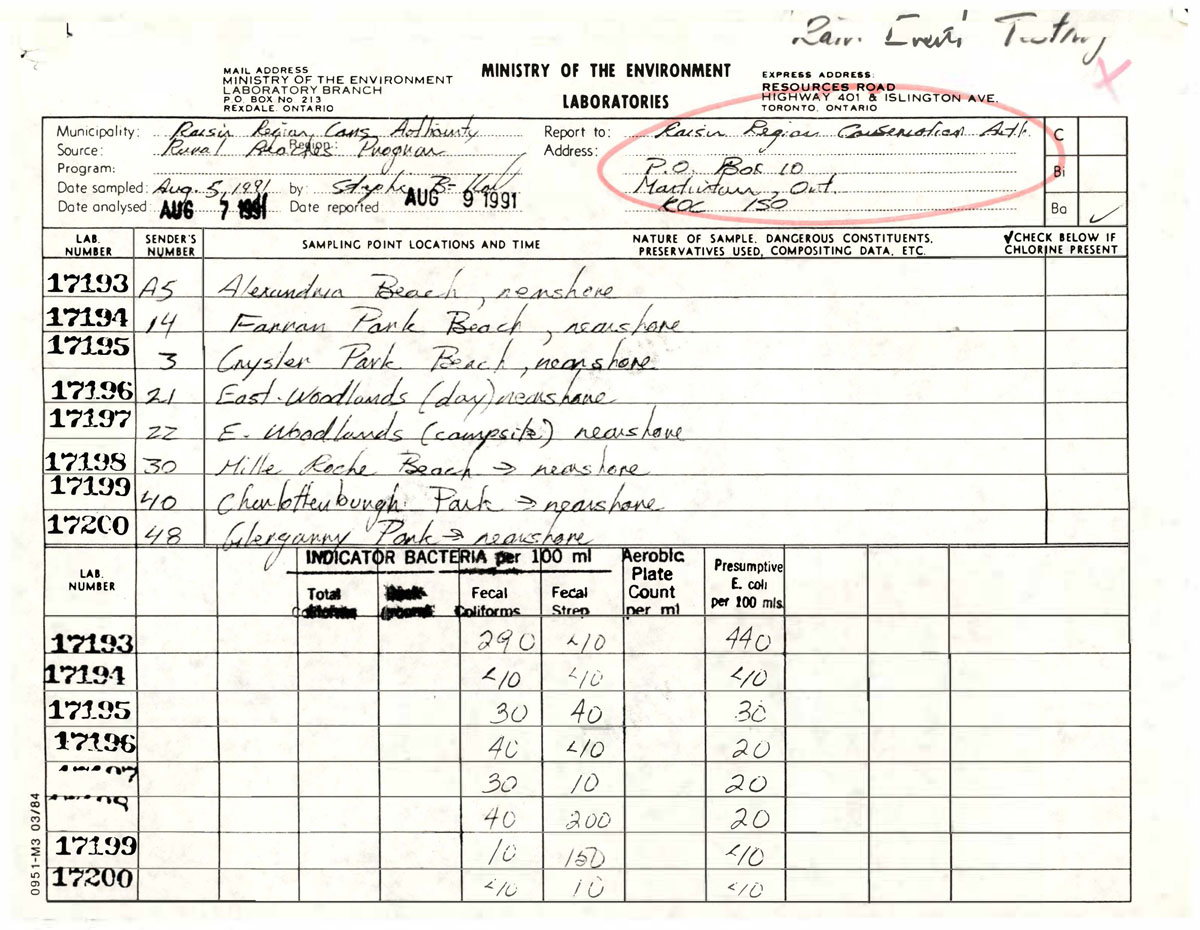 Rain Event Testing
MAIL ADDRESS
MINISTRY OF THE ENVIRONMENT
LABORATORY BRANCH
P.O. BOX No. 213
REXDALE, ONTARIO
MINISTRY OF THE ENVIRONMENT
LABORATORIES
EXPRESS ADDRESS:
RESOURCES ROAD
HIGHWAY 401 & ISLINGTON AVE.
TORONTO, ONTARIO
Municipality: Raisin Region Cons Authority
Source: Rural Beaches Program Region:
Program:
Date sampled: Aug. 5, 1991 by:
Date analysed AUG 7 1991 Date reported AUG 9 1991
Report to: Raisin Region Conservation Auth.
Address:
P.O. Box 10
Martintown, Ont.
K0C 1S0
C
Bi
Ba ✓
LAB. NUMBER SENDER'S NUMBER SAMPLING POINT LOCATIONS AND TIME NATURE OF SAMPLE, DANGEROUS CONSTITUENTS, PRESERVATIVES USED, COMPOSITING DATA, ETC. ✓CHECK BELOW IF CHLORINE PRESENT
17193 A5 Alexandria Beach, nearshore
17194 14 Farran Park Beach, nearshore
17195 3 Crysler Park Beach, nearshore
17196 21 East-Woodlands (day) nearshore
17197 22 E. Woodlands (campsite) nearshore
17198 30 Mille Roche Beach → nearshore
17199 40 Charlottenburgh Park → nearshore
17200 48 Glengarry Park → nearshore
INDICATOR BACTERIA per 100 ml
LAB. NUMBER Total Coliforms Fecal Coliforms Fecal Strep Aerobic Plate Count per ml Presumptive E. coli per 100 mls.
17193 290 <10 440
17194 <10 <10 <10
17195 30 40 30
17196 40 <10 20
30 10 20
40 200 20
17199 10 150 <10
17200 <10 10 <10
0951-M3 03/84